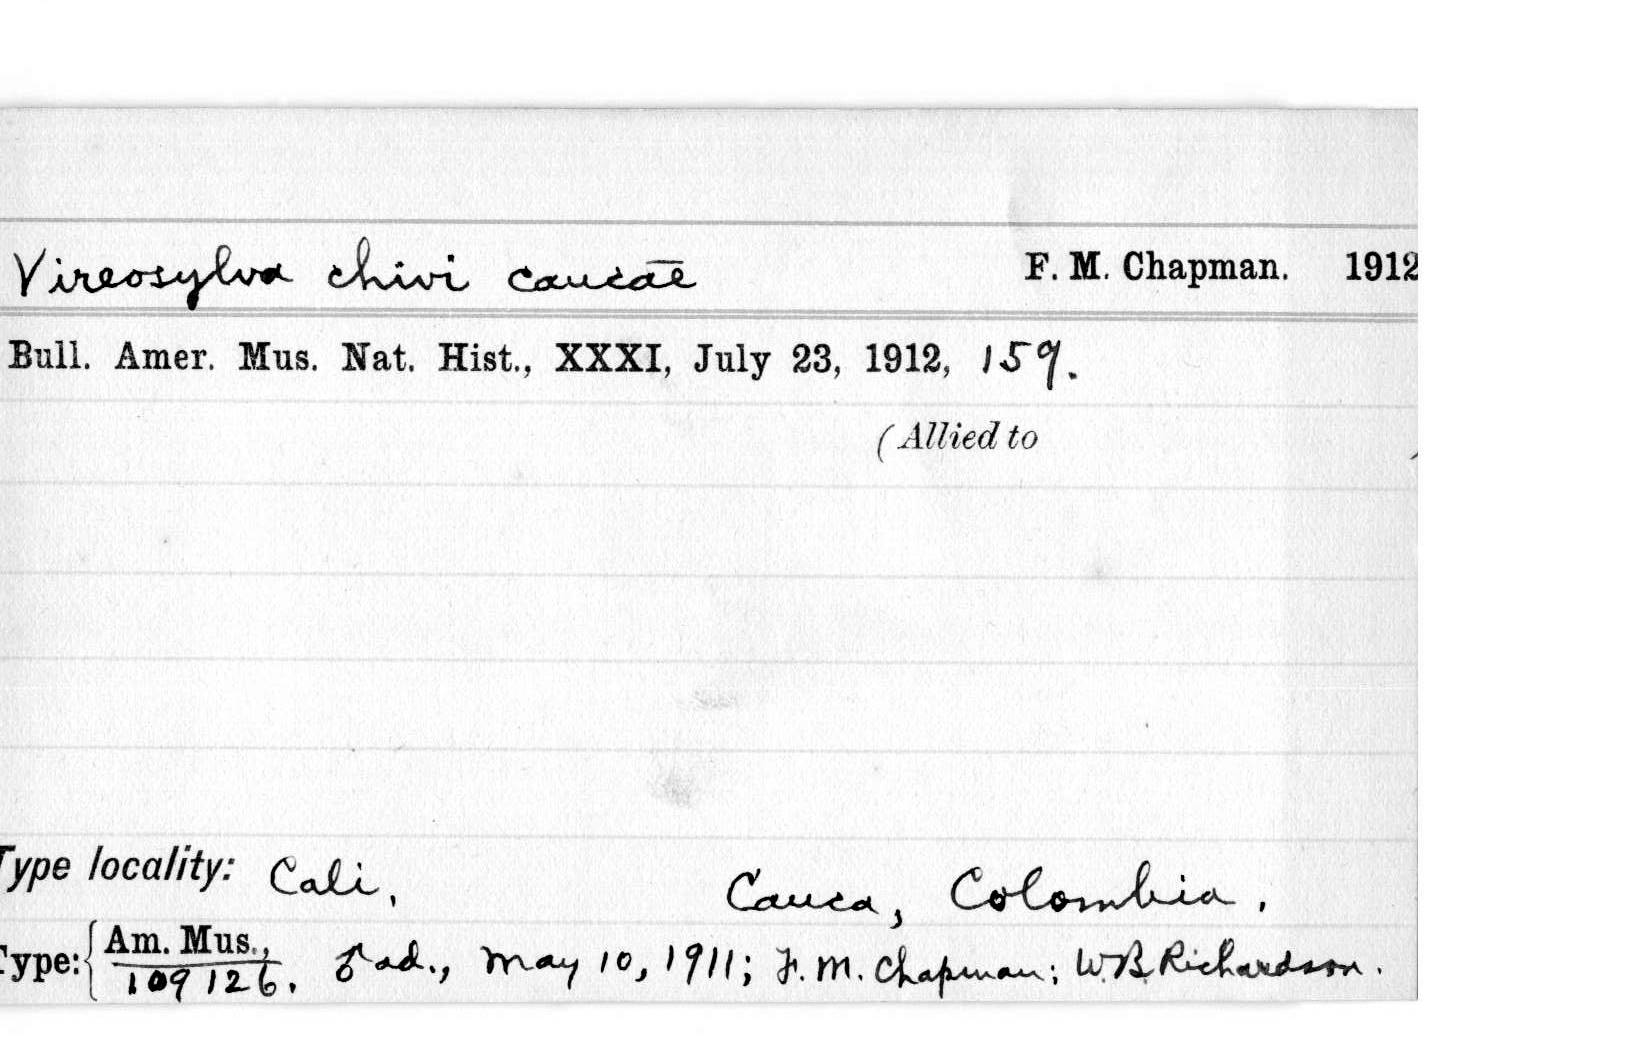 Vireosylva chivi caucae F. M. Chapman. 1912
Bull. Amer. Mus. Nat. Hist., XXXI, July 23, 1912, 159.
(Allied to )
Type locality: Cali, Cauca, Colombia.
Type: { Am. Mus., 109126. ♂ ad., May 10, 1911; F. M. Chapman; W. B. Richardson.